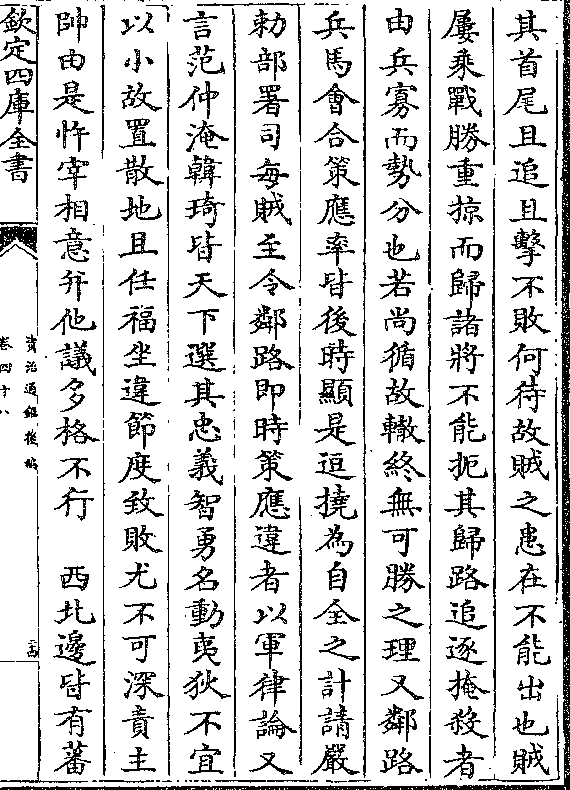 其首尾且追且擊不敗何待故賊之患在不能出也賊
屢乘戰勝重掠而歸諸將不能扼其歸路追逐掩殺者
由兵寡而勢分也若尚循故轍終無可勝之理又鄰路
兵馬會合策應率皆後時顯是逗撓為自全之計請嚴
勅部署司每賊至令鄰路即時策應違者以軍律論又
言范仲淹韓琦皆天下選其忠義智勇名動夷狄不宜
以小故置散地且任福坐違節度致敗尤不可深責主
帥由是忤宰相意并他議多格不行　西北邊皆有蕃
欽定四庫全書
資治通鑑後編
卷四十八